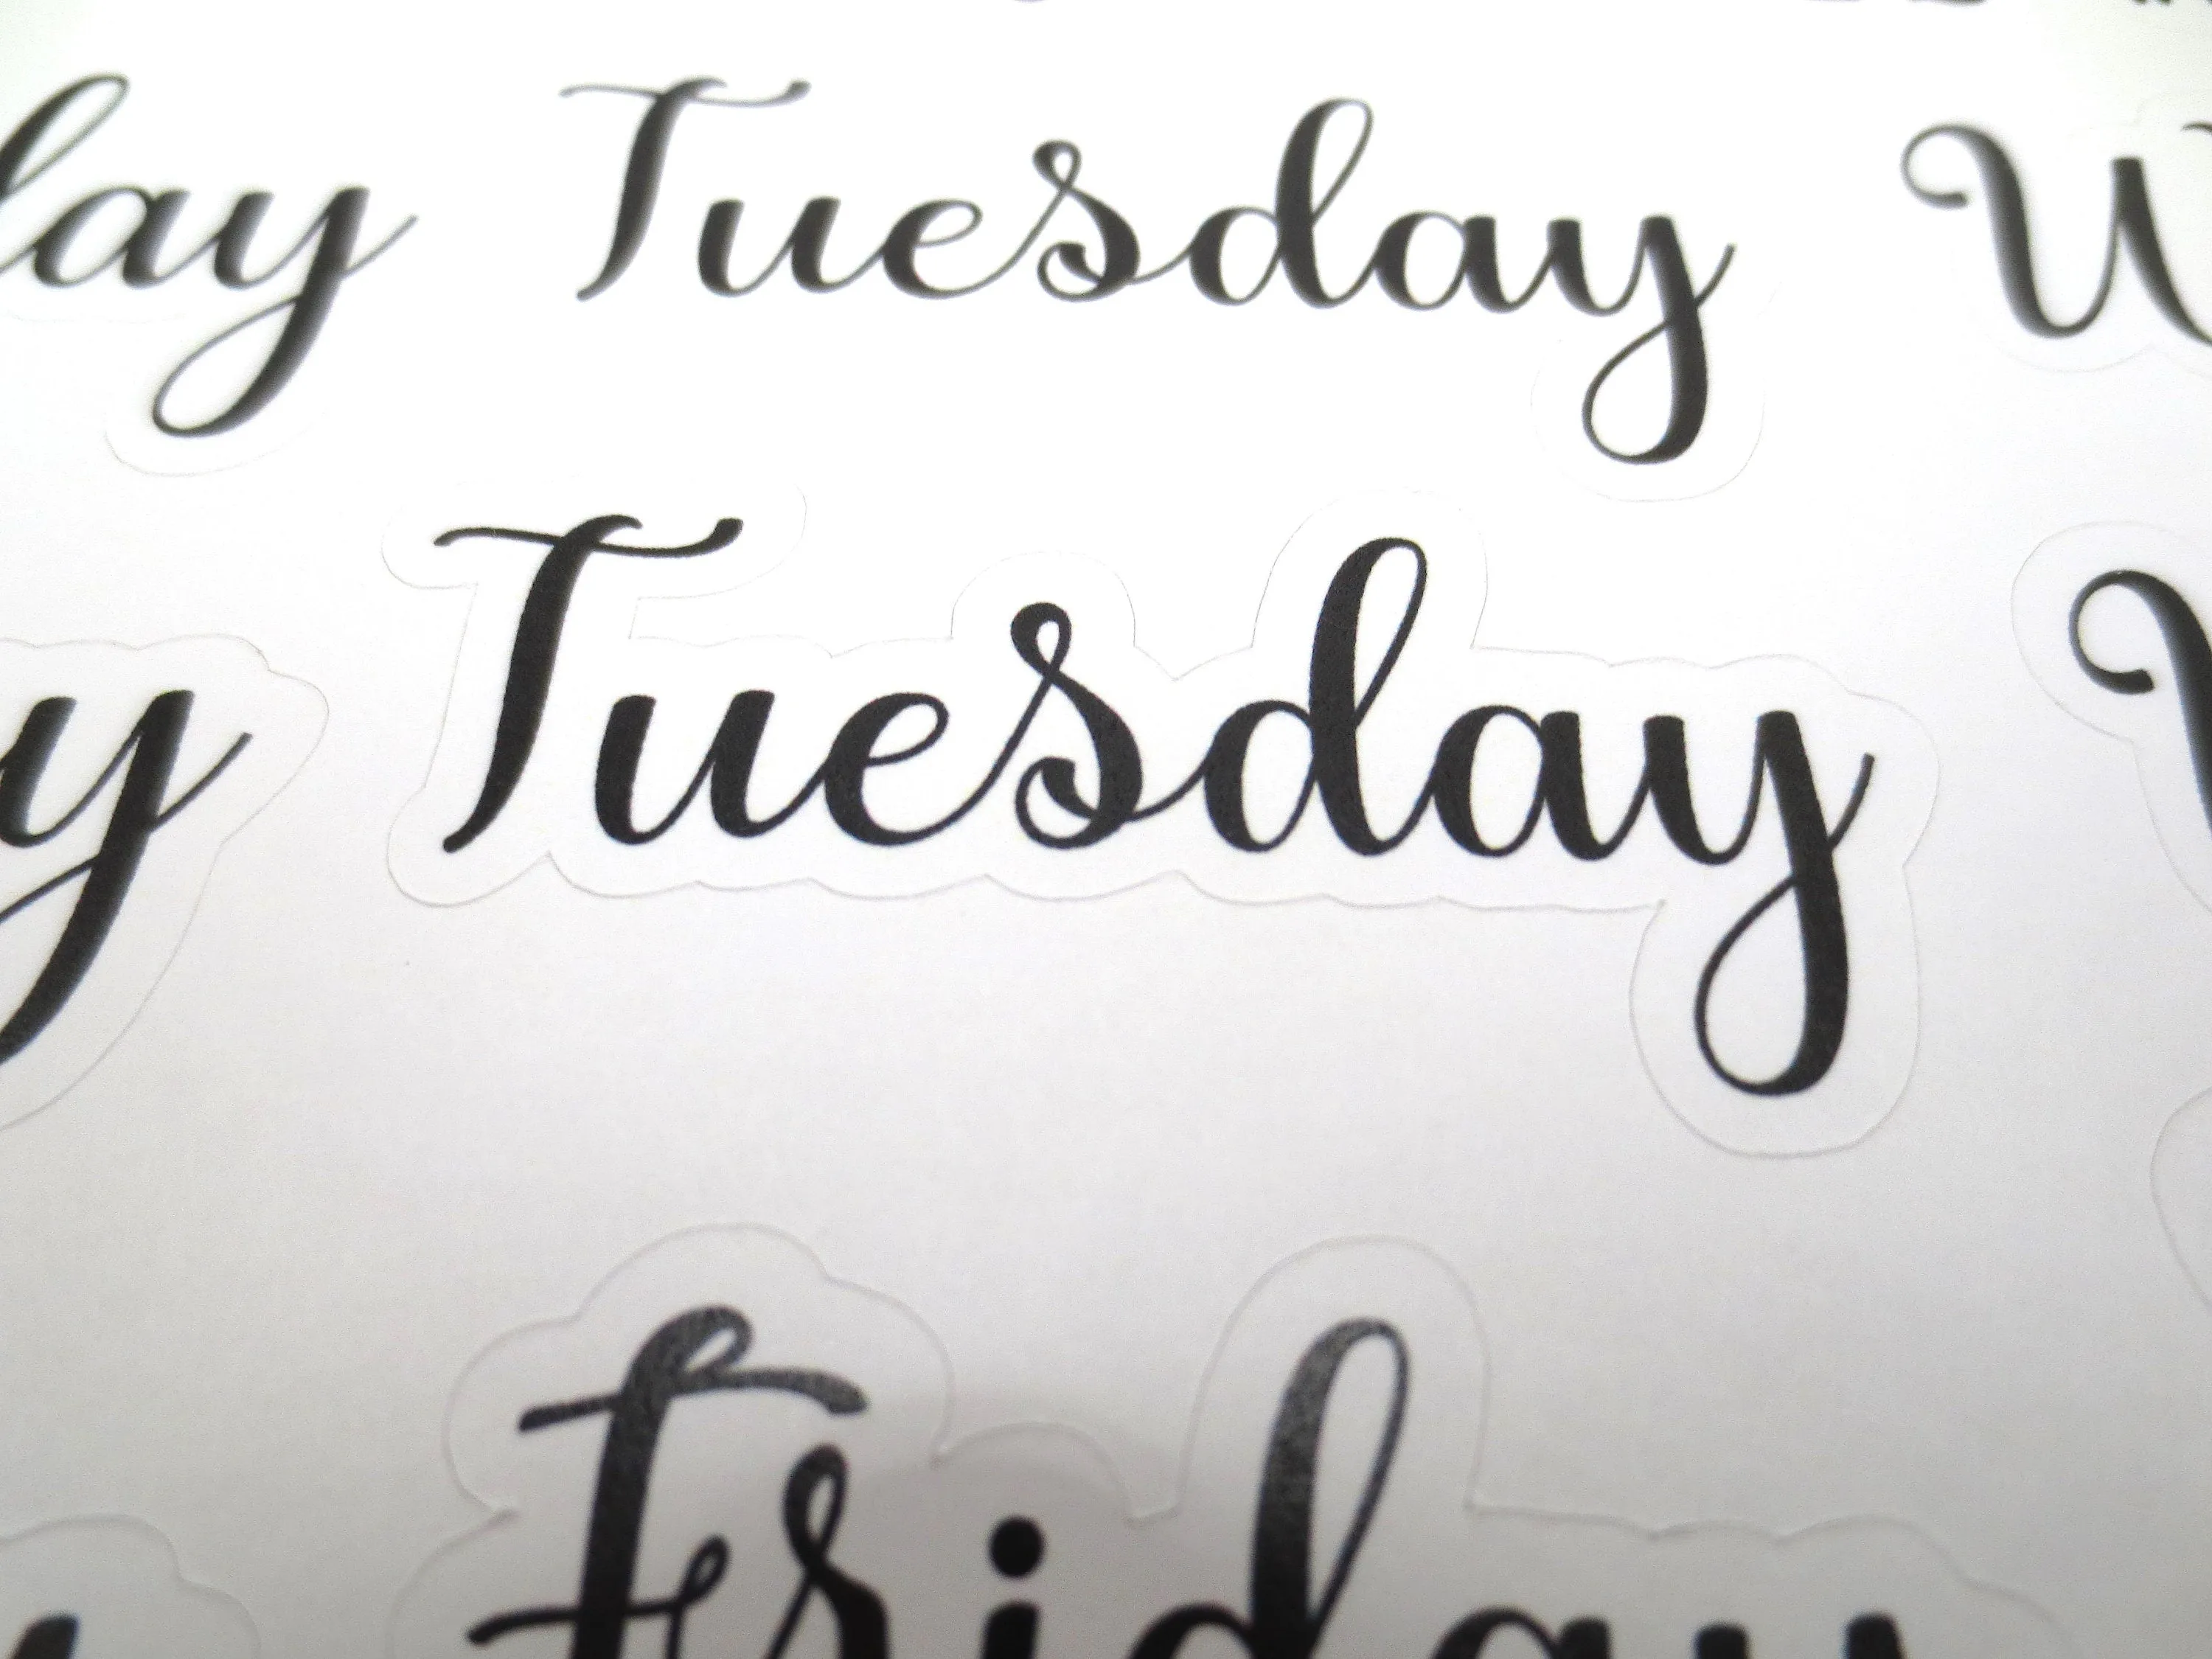 day Tuesday W
y Tuesday
Friday